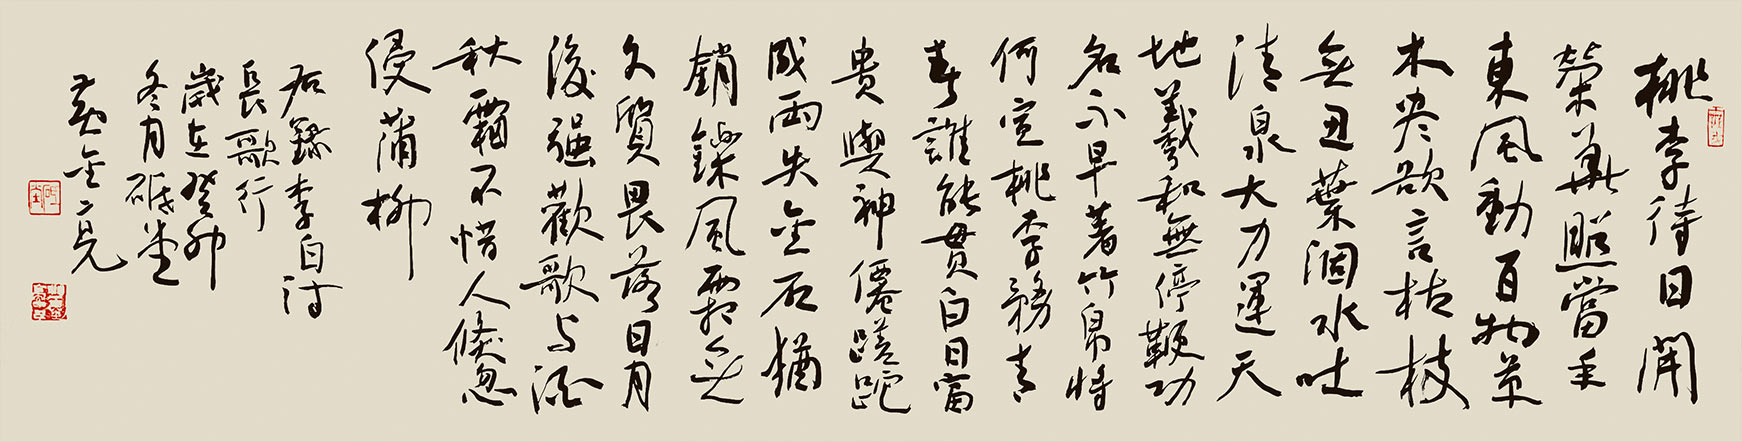 桃李待日開
榮華照當年
東風動百物草
木尽欲言枯枝
無丑葉涸水吐
清泉大力運天
地羲和無停鞭功
名不早著竹帛將
何宣桃李務青
春誰能貫白日富
貴與神僊蹉跎
成兩失金石猶
銷鑠風霜無
久質畏落日月
後强歡歌与酒
秋霜不惜人倏忽
侵蒲柳
右錄李白詩
長歌行
歲在癸卯
冬月砥堂
黃金亮